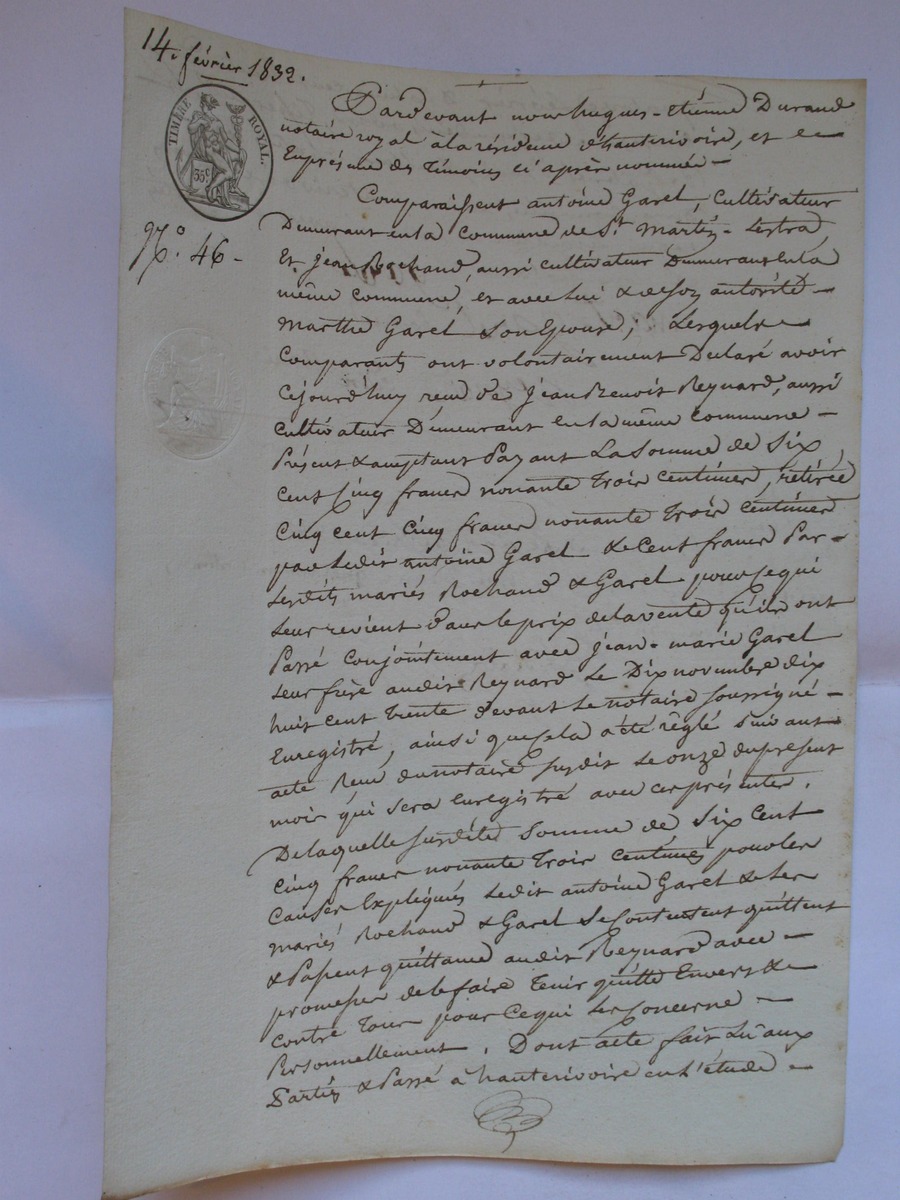 14. février 1832.
TIMBRE ROYAL.
35c
No. 46 -
Pardevant nous hugues-Etienne Durand
notaire royal à la résidence d'hauterivoire, et en
la présence des Témoins ci après nommés -
Comparaissent antoine Garel, Cultivateur
Demeurant en la Commune de St. Martin-Lestra
Et jean Rochand, aussi cultivateur Demeurant en la
même commune, et avec lui & de son autorité -
Marthe Garel son Epouse; Lesquels -
Comparants ont volontairement Déclaré avoir
Cejourd'huy reçu de jean Benoit Reynard, aussi
Cultivateur Demeurant en la même commune -
Présent & acceptant Payant La Somme de Six
Cent Cinq francs nonante Trois Centimes, retirée
Cinq cent Cinq francs nonante Trois Centimes
par Ledit antoine Garel & Cent francs Par -
Lesdits mariés Rochand & Garel pour ce qui
Leur revient Dans le prix de la vente qu'ils ont
Passé Conjointement avec jean-marie Garel
Leur frère audit Reynard Le Dix novembre dix
huit cent Trente devant Le notaire soussigné -
Enregistré, ainsi que cela a été règlé suivant
acte Reçu du notaire susdit Le onze du présent
mois qui sera enregistré avec ces présentes.
De laquelle susdite Somme de Six Cent
Cinq francs nonante Trois Centimes pour les
Causes Expliquées Ledit antoine Garel & Les
Mariés Rochand & Garel se contentent quittent
& Passent quittance audit Reynard avec -
promesse de le faire Tenir quitte Envers &
contre Tous pour Ce qui Les Concerne -
Personnellement. Dont acte fait Lû aux
Parties & Passé à hauterivoire en L'étude -